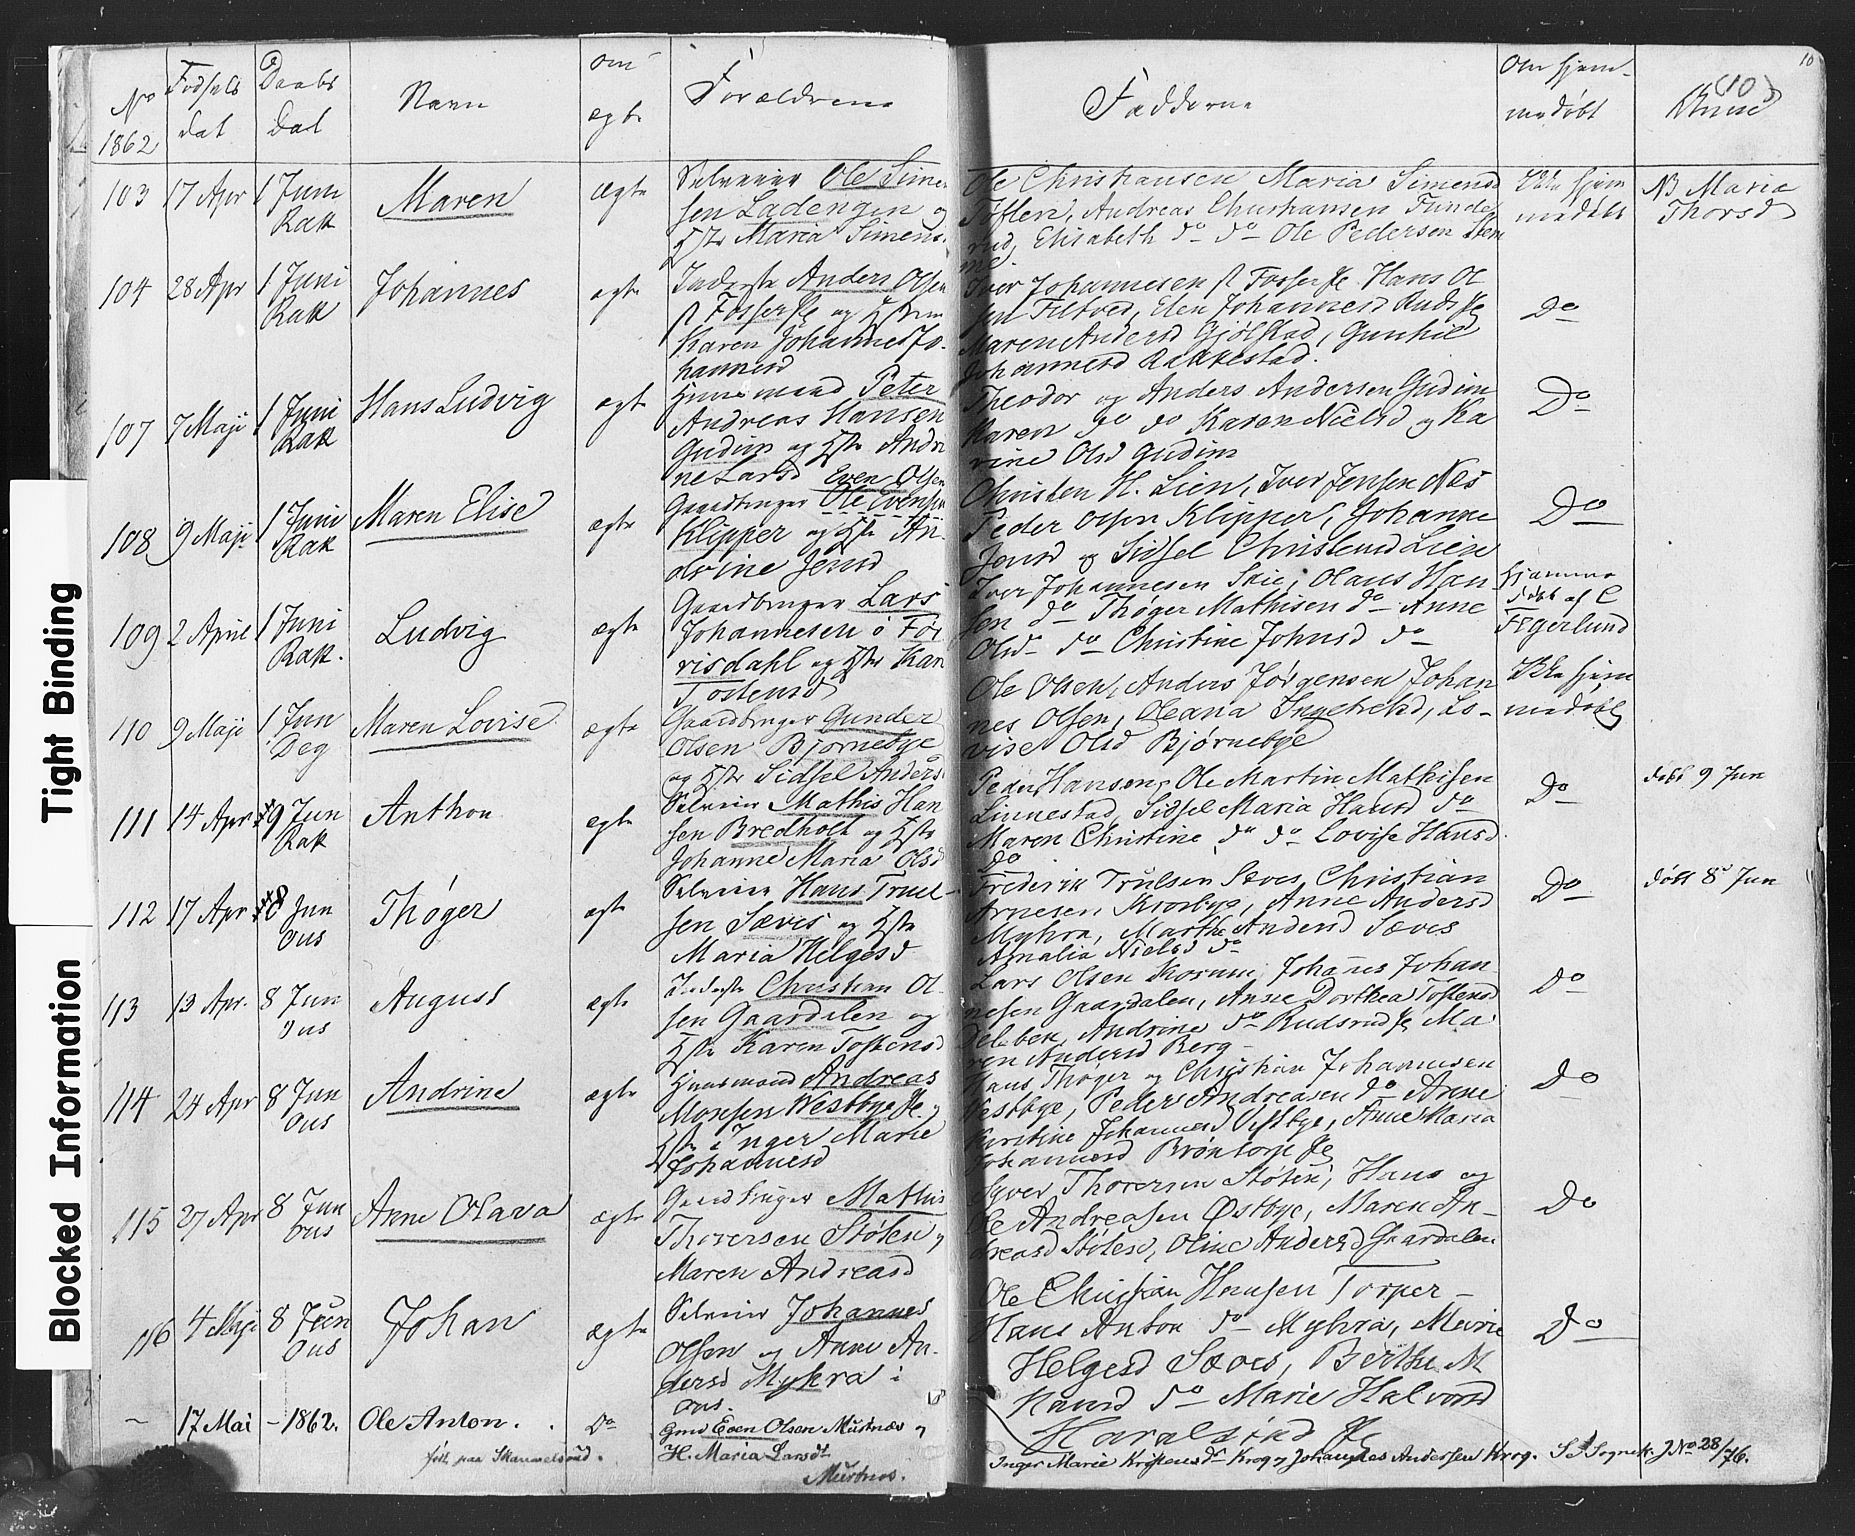 Tight Binding
Blocked Information
No 1862
Fødsels dat
Daabs Dat
Navn
om ægte
Forældrene
Fadderne
Om hjem-
medøbt
(10)
10
103 17 Apr 1 Juni Rak Maren ægte
Selveier Ole Sime
sen Ladengen og
Hst Maria Simens
Ole Christiansen Maria Simensd
Toften, Andreas Christiansen Funde
rud, Elisabeth do do Ole Pedersen
Ikke hjem
medøbt
NB Maria
Thorsd
104 28 Apr 1 Juni Rak Johannes ægte
Inderste Anders Olsen
Fosser Ie og Hstru
Karen Johannesd Jo-
hannesd
Iver Johannesen Fosser Ie Hans Ol
sen Filtved, Elen Johannesd Ruds Ie
Maren Andersd Gjølstad, Gunhil
Johannesd Rakkestad.
Do
107 7 Maji 1 Juni Rak Hans Ludvig ægte
Huusmand Peter
Andreas Hansen
Gudim og Hst Andri
ne Larsd
Theodor og Anders Andersen Gudim
Karen do do Karen Nielsd og Ka
rine Olsd Gudim
Do
108 9 Maji 1 Juni Rak Maren Elise ægte
Even Olsen
Gaardbruger Ole Evensen
Klipper og Hst An-
drine Jensd
Christen H. Lien, Iver Jensen Næs
Peder Olsen Klipper, Johanne
Jensd og Sidsel Christensd Lien
Do
109 2 April 1 Juni Rak. Ludvig ægte
Gaardbruger Lars
Johannesen o For
risdahl og Hst Kari
Tostensd
Iver Johannesen Skie, Olaus Han
sen do Thøger Mathisen do Anne
Olsd do Christine Johnsd do
hjemme
døbt af C
Fegerlund
110 9 Maji 1 Jun Deg Maren Lovise ægte
Gaardbruger Gunder
Olsen Bjørnebye
og Hst Sidsel Anders
Ole Olsen, Anders Jørgensen Johan
nes Olsen, Oleana Ingebretsd, Lo-
vise Olsd Bjørnebye
Ikke hjem
medøbt
111 14 Apr 9 Jun Rak Anthon ægte
Selveier Mathis Han
sen Bredholt og Hst
Johanne Maria Olsd
Peder Hansen, Ole Martin Mathisen
Linnestad, Sidsel Maria Hansd do
Maren Christine do do Lovise Hansd
Do
Do
døbt 9 Jun
112 17 Apr 8 Jun Ous Thøger ægte
Selveier Hans Truel-
sen Sævis og Hst
Maria Helgesd
Frederik Trulsen Sæves, Christian
Arnesen Krosbye, Anne Andersd
Myhra, Marthe Andersd Sæves
Amalia Nielsd do
Do
døbt 8 Jun
113 13 Apr. 8 Jun Ous August ægte
Inderste Christian Ol-
sen Gaardalen og
Hst Karen Tostensd
Lars Olsen Korum, Johanes Johan
nesen Gaardalen, Anne Dorthea Tostensd
Delebek, Andrine do Rudsrud Ie Ma
ren Andersd Berg
Do
114 24 Apr 8 Jun Ous Andrine ægte
Huusmand Andreas
Mosesen Westbye Ie og
Hst Inger Marie
Johannesd
Hans Thøger og Christian Johannesen
Vestbye, Peder Andreasen do Anne
Kirstine Johannesd Vestbye, Anne Maria
Johannesd Brøntorp Ie
Do
115 27 Apr 8 Jun Ous Anne Olava ægte
Gaardbruger Mathis
Thoversen Støten og
Maren Andreasd
Syver Thoversen Støten, Hans og
Ole Andreasen Østbye, Maren An-
dreasd Støten, Oline Andersd Gaardalen
Do
116 4 Maji 8 Jun Ous Johan ægte
Selveier Johannes
Olsen og Anne An-
dersd Myhra i
Ous.
Ole Christian Hansen Torper
Hans Anton do Myhra, Marie
Helgesd Sæves, Berthe M
Hansd do Marie Halvorsd
Haralsrud Ie
Do
- 17 Mai - 1862. Ole Anton. Do
født paa Skammelsrud.
Gmd Even Olsen Murtnæs og
H. Maria Larsdt
Murtnæs.
Inger Marie Kristensdr Krog og Johannes Andersen Krog. S Sognek. J No 28/76.